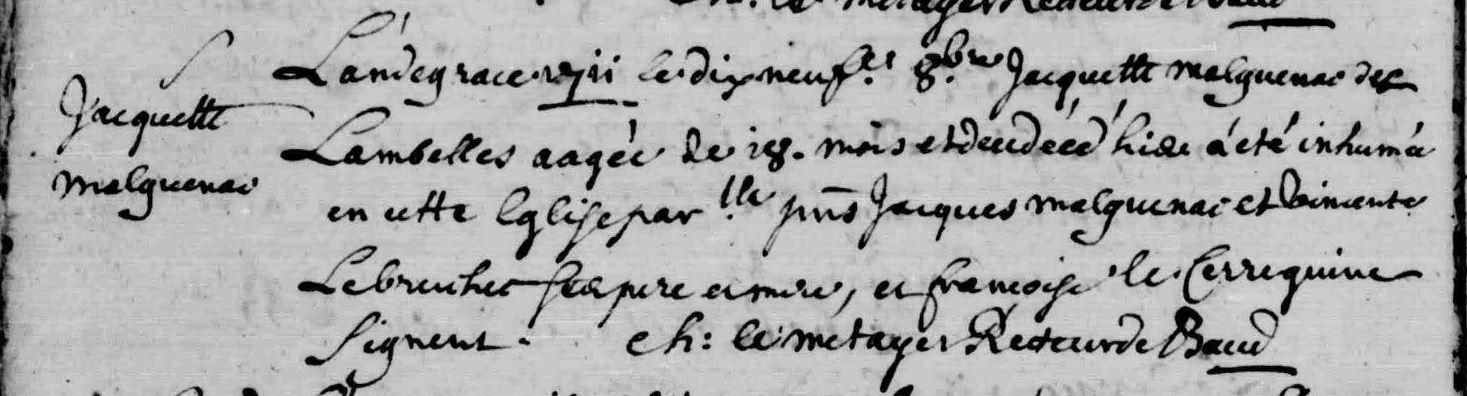 Ch: le metayer Recteur de Baud
L'an de grace 1711 le dix neuf.e 8.bre Jacquette malguenac des
Jacquette
malguenac
Lambelles aagée de 18. mois et decedée hier a été inhumée
en cette Eglise par pnts Jacques malguenac et Vincente
Lebreuhec ses pere et mere, et francoise le Cerrequine
Signent. Ch: le metayer Recteur de Baud